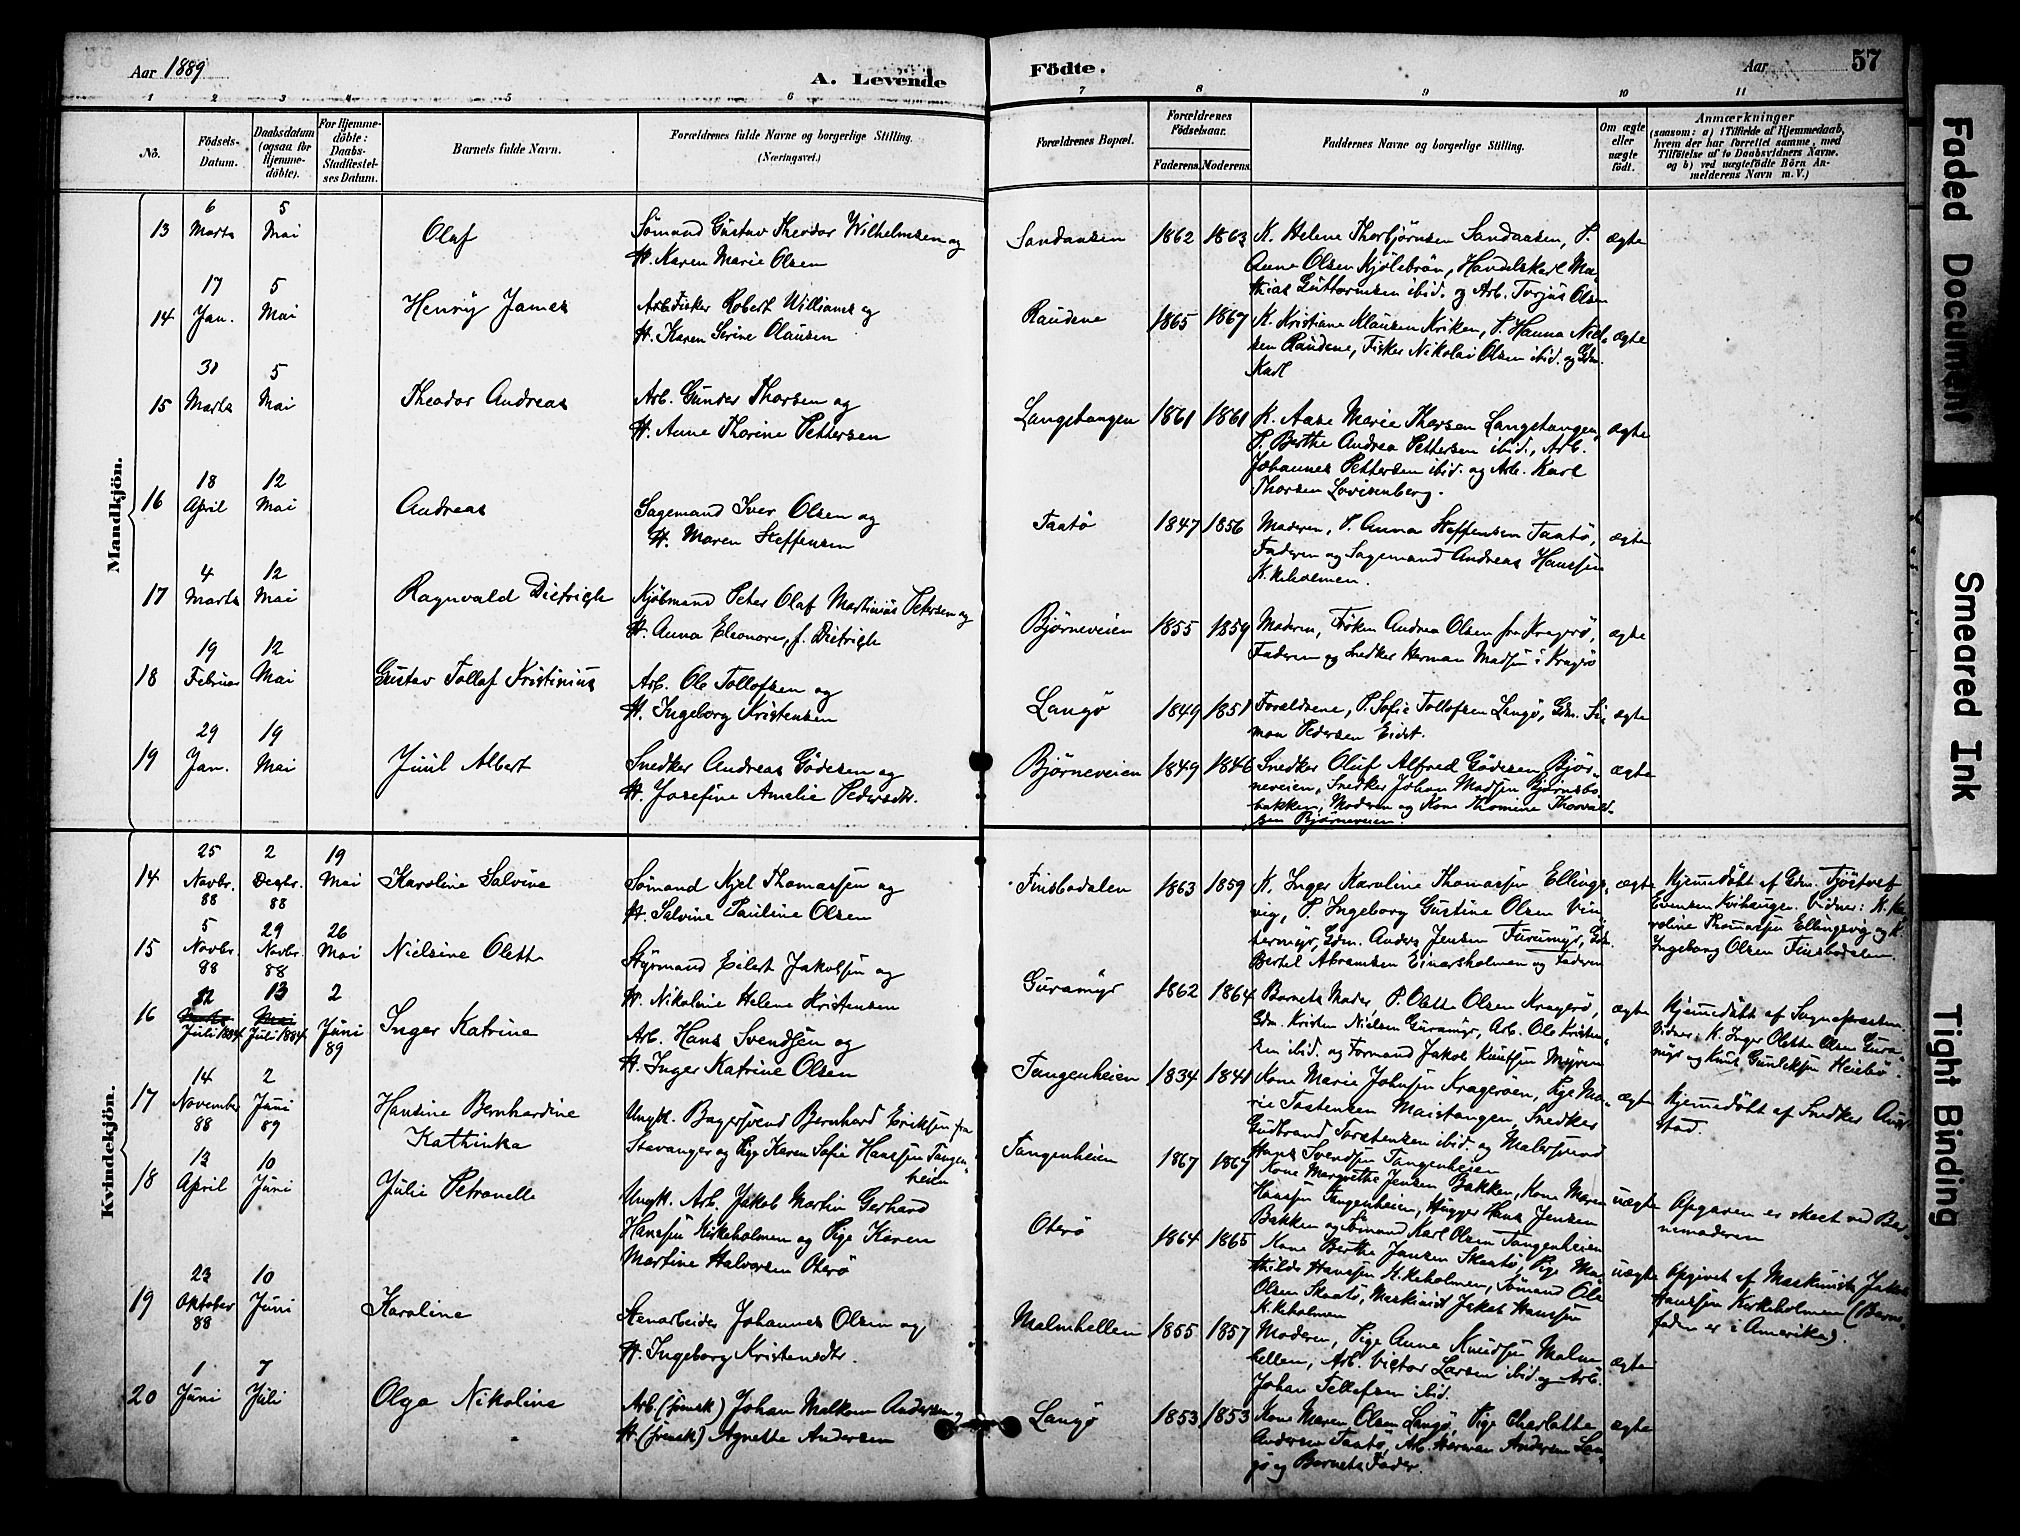 Aar 1889
A. Levende
Födte.
Aar
57
1 2 3 4 5 6 7 8 9 10 11
No.
Födsels-
Datum.
Daabsdatum
(ogsaa for
Hjemme-
döbte).
For Hjemme-
döbte:
Daabs-
Stadfæstel-
ses Datum.
Barnets fulde Navn.
Forældrenes fulde Navne og borgerlige Stilling.
(Næringsvei.)
Forældrenes Bopæl.
Forældrenes
Födselsaar.
Faderens. Moderens.
Faddernes Navne og borgerlige Stilling.
Om ægte
eller
uægte
födt.
Anmærkninger
(saasom: a) i Tilfælde af Hjemmedaab,
hvem der har forrettet samme, med
Tilföielse af to Daabsvidners Navne.
og b) ved uægtefödte Börn An-
melderens Navn m. V.)
Mandkjön.
13
6
Marts
5
Mai
Olaf
Sömand Gustav Theodor Wilhelmsen og
H. Karen Marie Olsen
Sandaasen
1862 1863
K. Helene Thorbjørnsen Sandaasen, P.
Anne Olsen Kjölebrön, Handelskarl Ma-
thias Guttormsen ibid. og Arb. Torjus Olsen
ægte
14
17
Jan.
5
Mai
Henry James
Arb. Fisker Robert Williams og
H. Karen Serine Olausen
Raudene
1865 1867
K. Kristiane Klausen Kriken, P. Hanna Niel-
sen Raudene, Fisker Nikolai Olsen ibid. og Gdm.
Karl
ægte
15
30
Marts
5
Mai
Theodor Andreas
Arb. Gunder Thorsen og
H. Anne Thorine Pettersen
Langstangen
1861 1861
K. Aase Marie Thorsen Langstangen,
P. Berthe Andrea Pettersen ibid., Arb.
Johannes Pettersen ibid. og Arb. Karl
Thorsen Lovisenberg.
ægte
16
18
April
12
Mai
Andreas
Sagemand Iver Olsen og
H. Maren Steffensen
Taatö
1847 1856
Moderen, P. Anna Steffensen Taatö,
Faderen og Sagemand Andreas Hanssen
Kirkeholmen.
ægte
17
4
Marts
12
Mai
Ragnvald Dietrich
Kjöbmand Peter Olaf Martinius Petersen og
H. Anna Eleonore, f. Dietrich
Bjørneveien
1855 1859
Moderen, Frøken Andrea Olsen fra Kragerö,
Faderen og Snedker Herman Madsen i Kragerö
ægte
18
19
Februar
12
Mai
Gustav Tollaf Kristinius
Arb. Ole Tollofsen og
H. Ingeborg Kristensen
Langö
1849 1851
Forældrene, P. Sofie Tollofsen Langö, Gdm. Si-
mon Pedersen Eidet.
ægte
19
29
Jan.
19
Mai
Juul Albert
Snedker Andreas Gödesen og
H. Josefine Amelie Pedersdtr.
Bjørneveien
1849 1846
Snedker Oluf Alfred Gödesen Bjør-
neveien, Snedker Johan Madsen Bjørnsbo-
bakken, Moderen og Kone Thomine Thorvald-
sen Bjørneveien.
ægte
Kvindekjön.
14
25
Novbr.
88
2
Decbr.
88
19
Mai
Karoline Salvine
Sömand Kjel Thomassen og
H. Salvine Pauline Olsen
Finsbodalen
1863 1859
K. Inger Karoline Thomassen Ellings-
vig, P. Ingeborg Gustine Olsen Vin-
termyr, Gdm. Anders Jensen Furumyr, Gdm.
Bertel Abramsen Einarsholmen og Faderen
ægte
Hjemmedöbt af Gdm. Tjöstvel
Evensen Kvihaugen. Vidner: K. Ka-
roline Thomassen Ellingsvig og K.
Ingeborg Olsen Finsbodalen.
15
5
Novbr.
88
29
Novbr.
88
26
Mai
Nielsine Olette
Styrmand Eilert Jakobsen og
H. Nikoline Helene Kristensen
Guramyr
1862 1864
Barnets Moder P. Olette Olsen Kragerö,
Gdm. Kristen Nielsen Guramyr, Arb. Ole Kristen-
sen ibid. og Formand Jakob Knutsen Myren
ægte
Hjemmedöbt af Sognepræsten.
Vidner: K. Inger Olette Olsen Gura-
myr og Knut Gunleksen Heiebö.
16
Juli 1884
13
Juli 1884
2
Juni
89
Inger Katrine
Arb. Hans Svendsen og
H. Inger Katrine Olsen
Tangenheien
1834 1841
Kone Marie Johnsen Kragerøen, Pige Ma-
rie Tostensen Maistangen, Snedker
Gudbrand Torstensen ibid. og Malersvend
Hans Svendsen Tangenheien
ægte
Hjemmedöbt af Snedker
17
14
November
88
2
Juni
89
Hansine Bernhardine
Kathinka
Ungk. Bagersvend Bernhard Eriksen fra
Stavanger og Pige Karen Sofie Hanssen Tangen-
heien
Tangenheien
1867 1867
Kone Margrethe Jensen Bakken, Kone Maren
Hanssen Tangenheien, Hugger Hans Jensen
Bakken og Sömand Karl Olsen Tangenheien
uægte
Opgaven er skeet ved Bar-
nemoderen
18
13
April
10
Juni
Julie Petronelle
Ungk. Arb. Jakob Martin Gerhard
Hanssen Kirkeholmen og Pige Karen
Martine Halvorsen Oterö
Oterö
1864 1865
Kone Berthe Jansen Skaatö, Pige Ma-
thilde Hanssen Kirkeholmen, Sömand Ole
Olsen Skaatö, Maskinist Jakob Hanssen
Kirkeholmen
uægte
Opgivet af Maskinist Jakob
Hanssen Kirkeholmen (Barne-
faderen er i Amerika).
19
23
Oktober
88
10
Juni
Karoline
Stenarbeider Johannes Olsen og
H. Ingeborg Kristensdtr.
Malmhellen
1855 1857
Moderen, Pige Anne Knudsen Malm-
hellen, Arb. Victor Larsen ibid. og Arb.
Johan Tellefsen ibid.
ægte
20
1
Juni
7
Juli
Olga Nikoline
Arb. (svensk) Johan Malkom Andersen og
H. (svensk) Agnette Andersen
Langö
1853 1853
Kone Maren Olsen Langö, Pige Charlotte
Andersen Taatö, Arb. Herman Andersen Lan-
gö og Barnets Fader.
ægte
Faded Document
Smeared Ink
Tight Binding